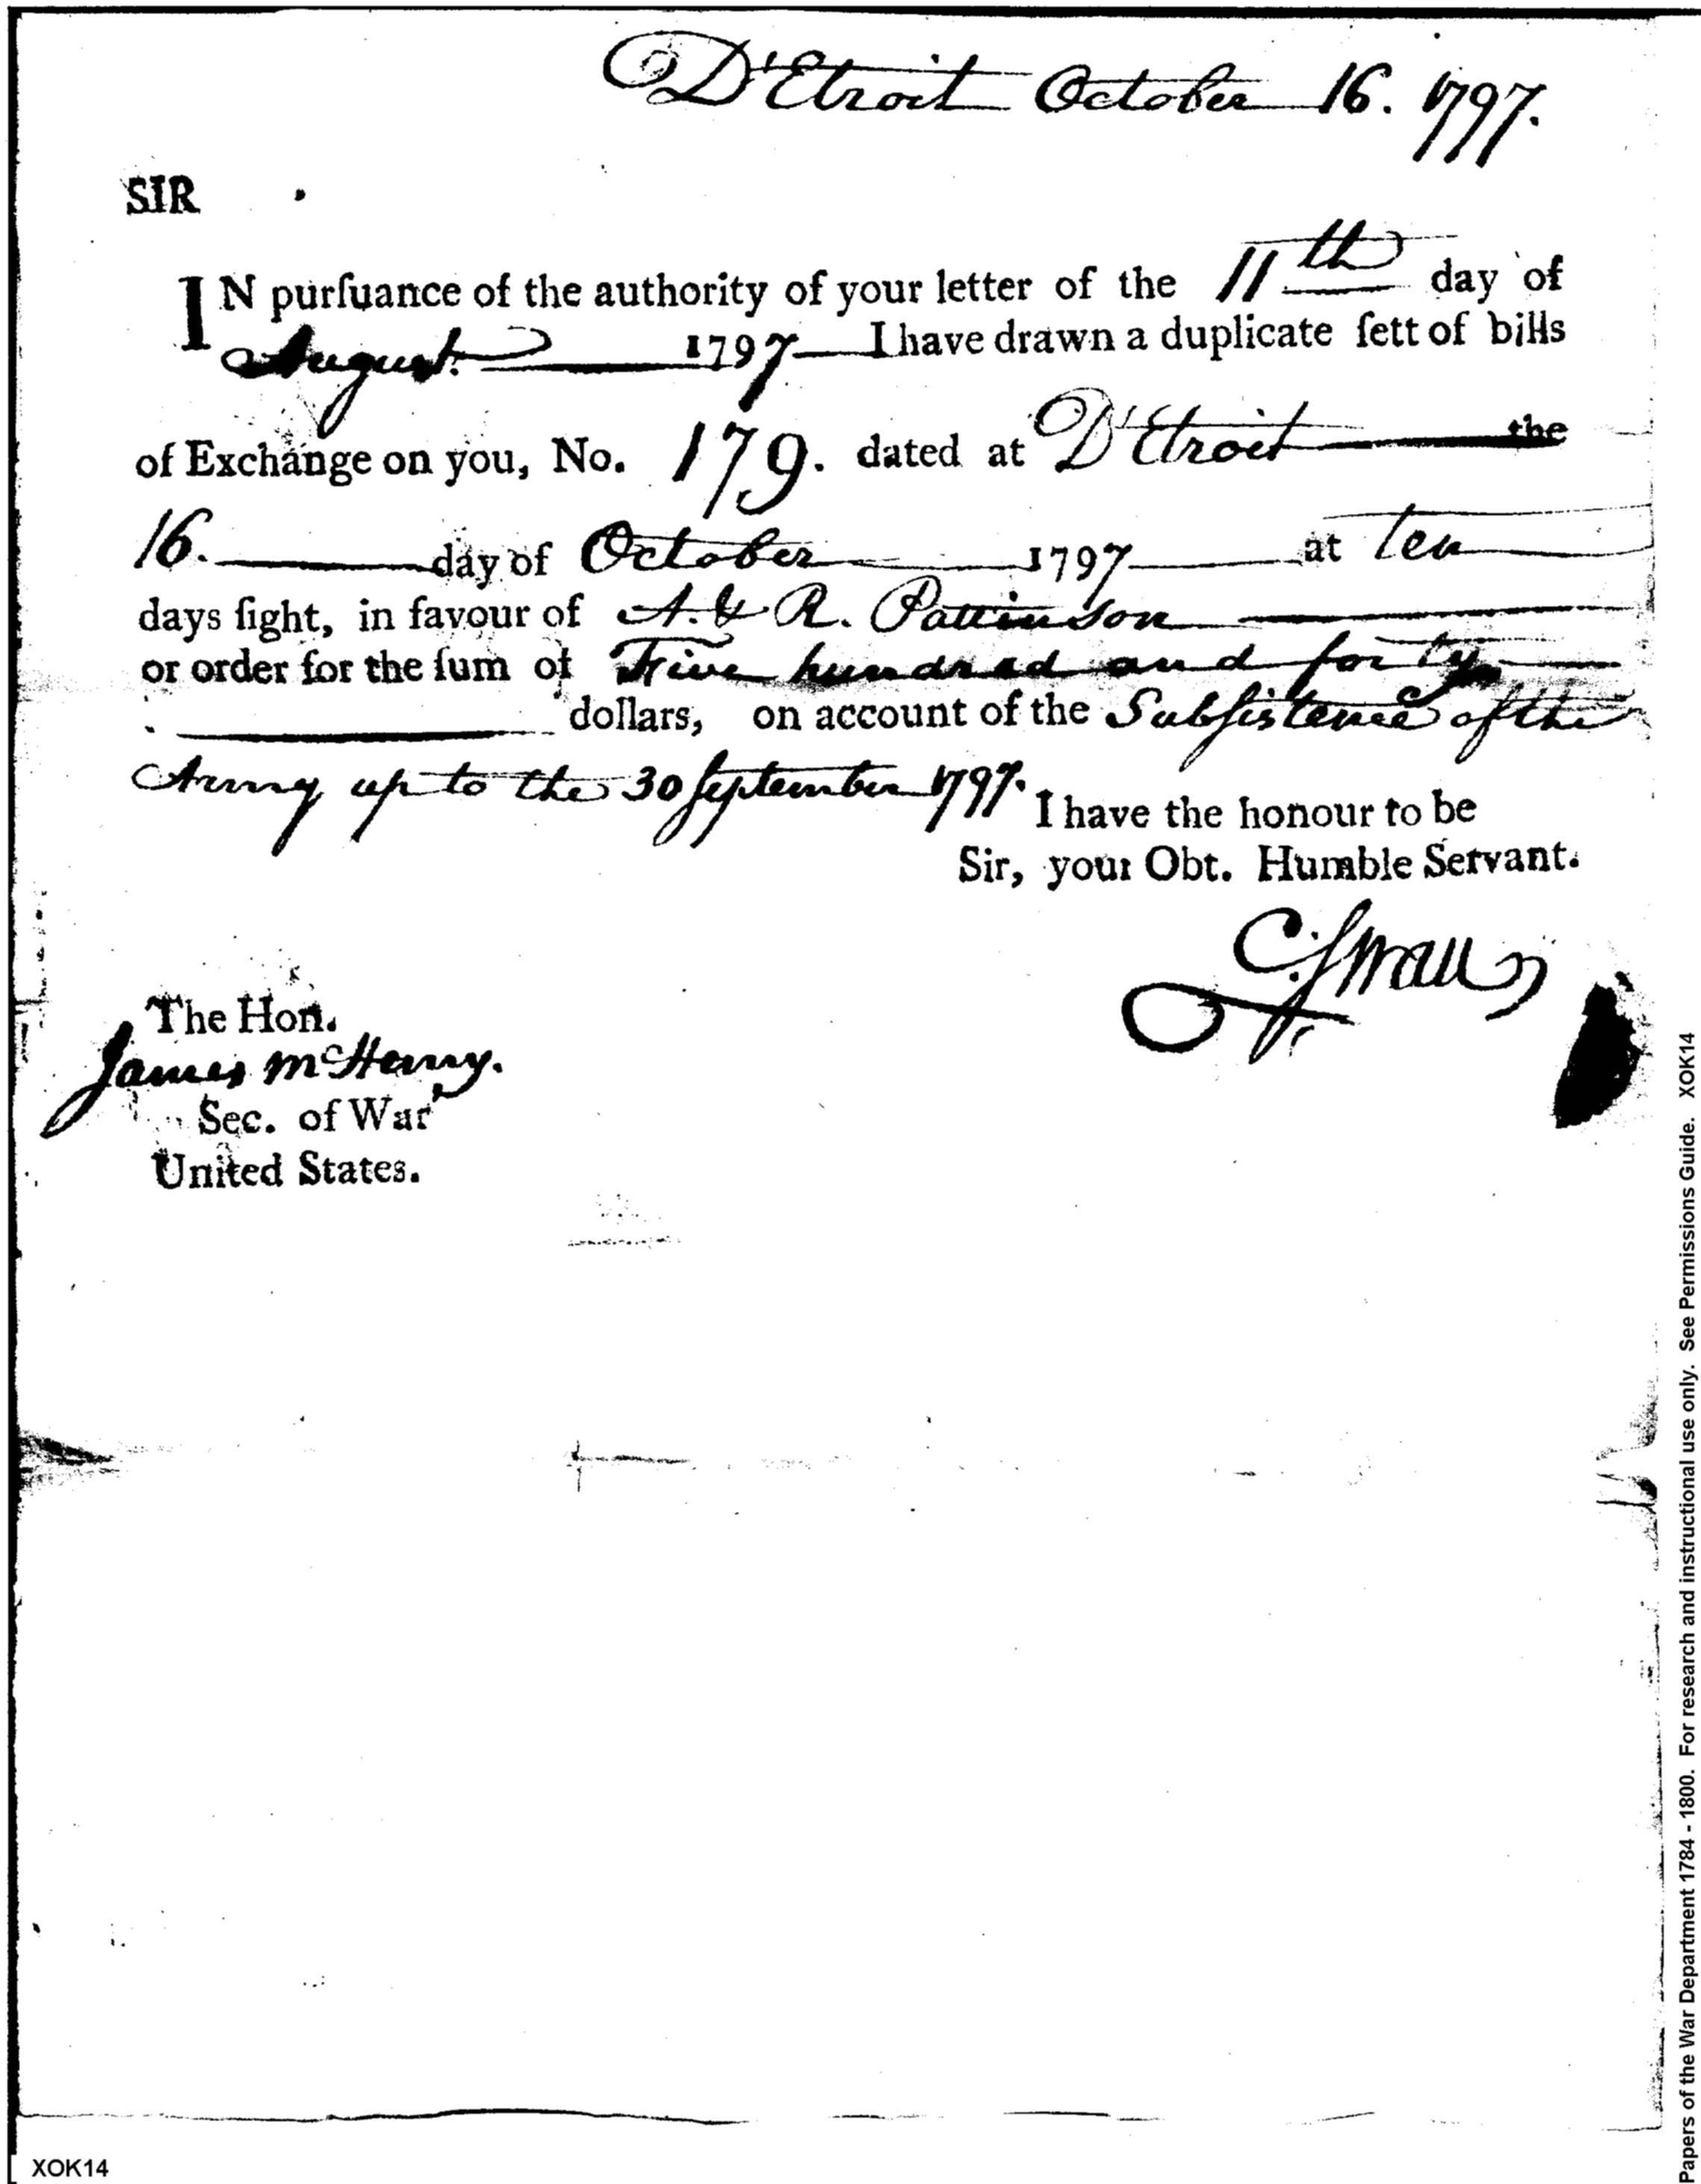 D'Etroit October 16. 1797.
SIR
IN purſuance of the authority of your letter of the 11th day of
August. 1797 I have drawn a duplicate ſett of bills
of Exchange on you, No. 179. dated at D'Etroit the
16. day of October 1797 at ten
days ſight, in favour of A. & R. Pattinson
or order for the ſum of Five hundred and forty
dollars, on account of the Subſistence of the
Army up to the 30 September 1797.
I have the honour to be
Sir, your Obt. Humble Servant.
C. Swan
The Hon.
James McHenry.
Sec. of War
United States.
XOK14
Papers of the War Department 1784 - 1800. For research and instructional use only. See Permissions Guide. XOK14